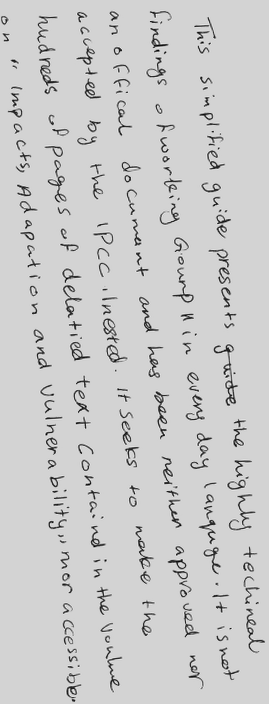 This simplified guide presents guide the highly techineal
findings of working Gourp II in every day languge. It is not
an offical document and has been neither approved nor
accepted by the IPCC. Insted. It seeks to make the
hudreds of pages of delatied text Containd in the Voulme
on " Impacts, Adapation and Vulnerability,, mor accessible.